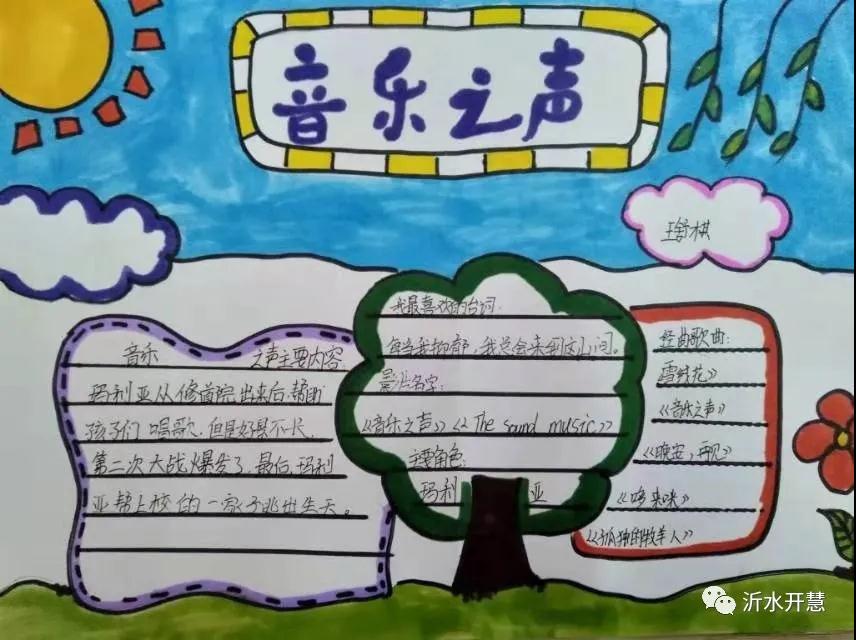 音乐之声
王舒棋
音乐 之声主要内容
玛利亚从修道院出来后,帮助
孩子们唱歌,但是好景不长,
第二次大战爆发了,最后,玛利
亚帮上校的一家子逃出生天。
我最喜欢的台词:
每当我抑郁,我总会来到这山间。
影片名字:
《音乐之声》《The sound music》
主要角色:
玛利 亚
经典歌曲:
雪绒花》
《音乐之声》
《晚安,再见》
《哆来咪》
《孤独的牧羊人》
沂水开慧